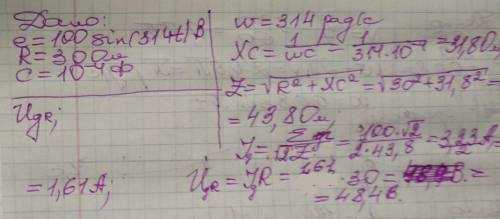 Дано:
e=100 sin(314t)В
R=30Ом
C=10⁻⁴Ф
UдR;
w=314 рад/с
Xc=1/wc=1/314·10⁻⁴=31,8Ом
Z=√R²+Xc²=√30²+31,8²=
=43,8Ом
=100·√2/2·43,8=
=1,61A;
UR=IR=1,61·30=
=48,4В.